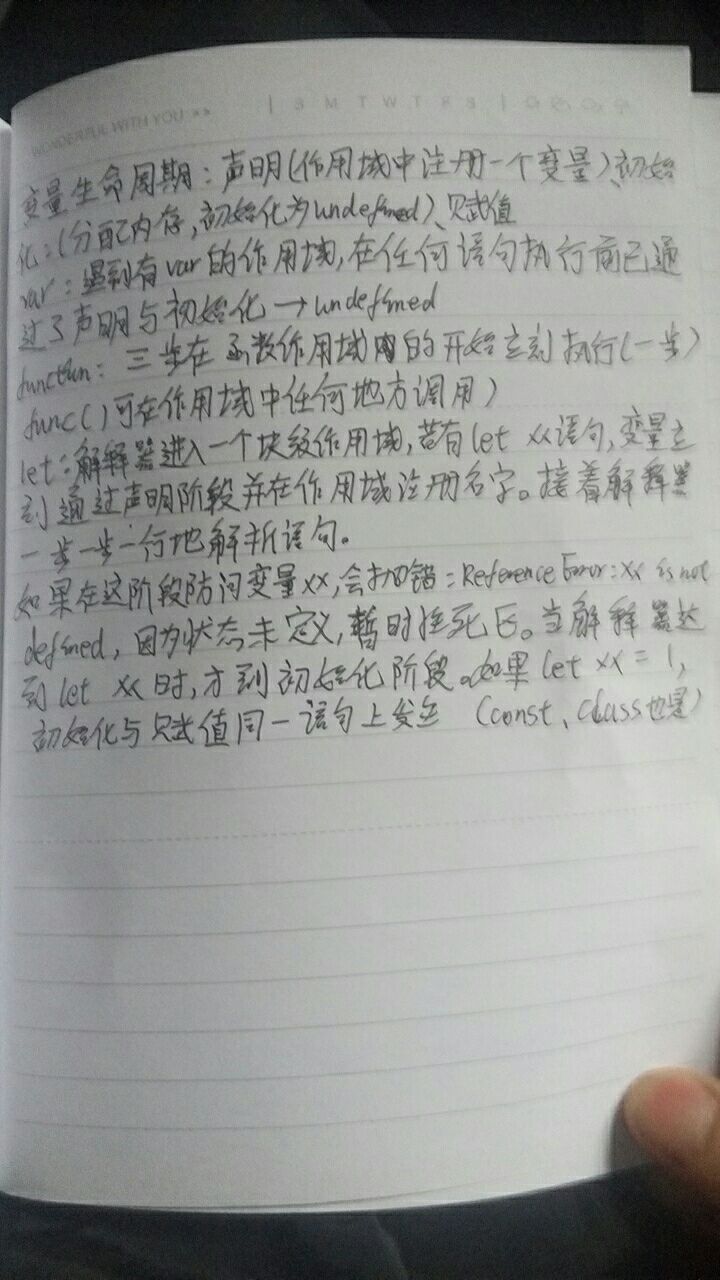 WONDERFUL WITH YOU >>
S M T W T F S
变量生命周期：声明(作用域中注册一个变量)、初始
化：(分配内存，初始化为undefined)、赋值
var：遇到有var的作用域，在任何语句执行前已通
过了声明与初始化→undefined
function：三步在函数作用域的开始立刻执行(一步)
func()可在作用域中任何地方调用)
let：解释器进入一个块级作用域，若有let xx语句，变量立
刻通过声明阶段并在作用域注册名字。接着解释器
一步一步一行地解析语句。
如果在这阶段防问变量xx，会报错：Reference Error：xx is not
defined，因为状态未定义，暂时性死区。当解释器达
到let xx时，才到初始化阶段。如果let xx = 1，
初始化与赋值同一语句上发生 (const、class也是)